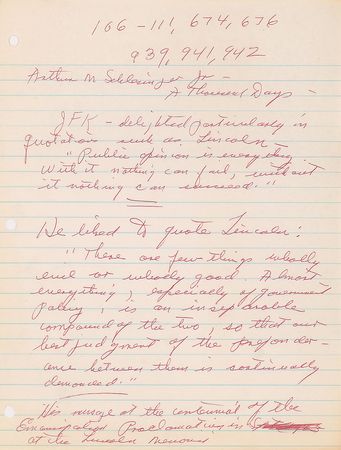 106-111, 674, 676
939, 941, 942
Arthur M Schlesinger Jr -
A Thousand Days -
JFK - delighted particularly in
quotations such as Lincoln -
"Public opinion is everything.
With it nothing can fail, without
it nothing can succeed."
He liked to quote Lincoln:
"There are few things wholly
evil or wholly good. Almost
everything, especially of government
policy, is an inseparable
compound of the two, so that our
best judgment of the preponder-
ance between them is continually
demanded."
His message at the centennial of the
Emancipation Proclamation in
at the Lincoln Memorial